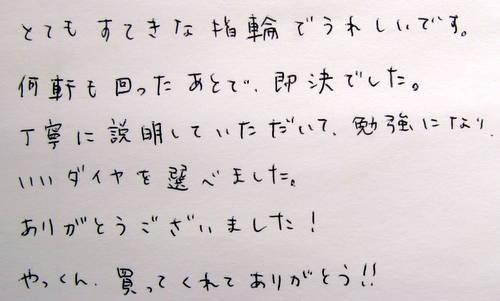 とてもすてきな指輪でうれしいです。
何軒も回ったあとで、即決でした。
丁寧に説明していただいて、勉強になり、
いいダイヤを選べました。
ありがとうございました!
やっくん、買ってくれてありがとう!!